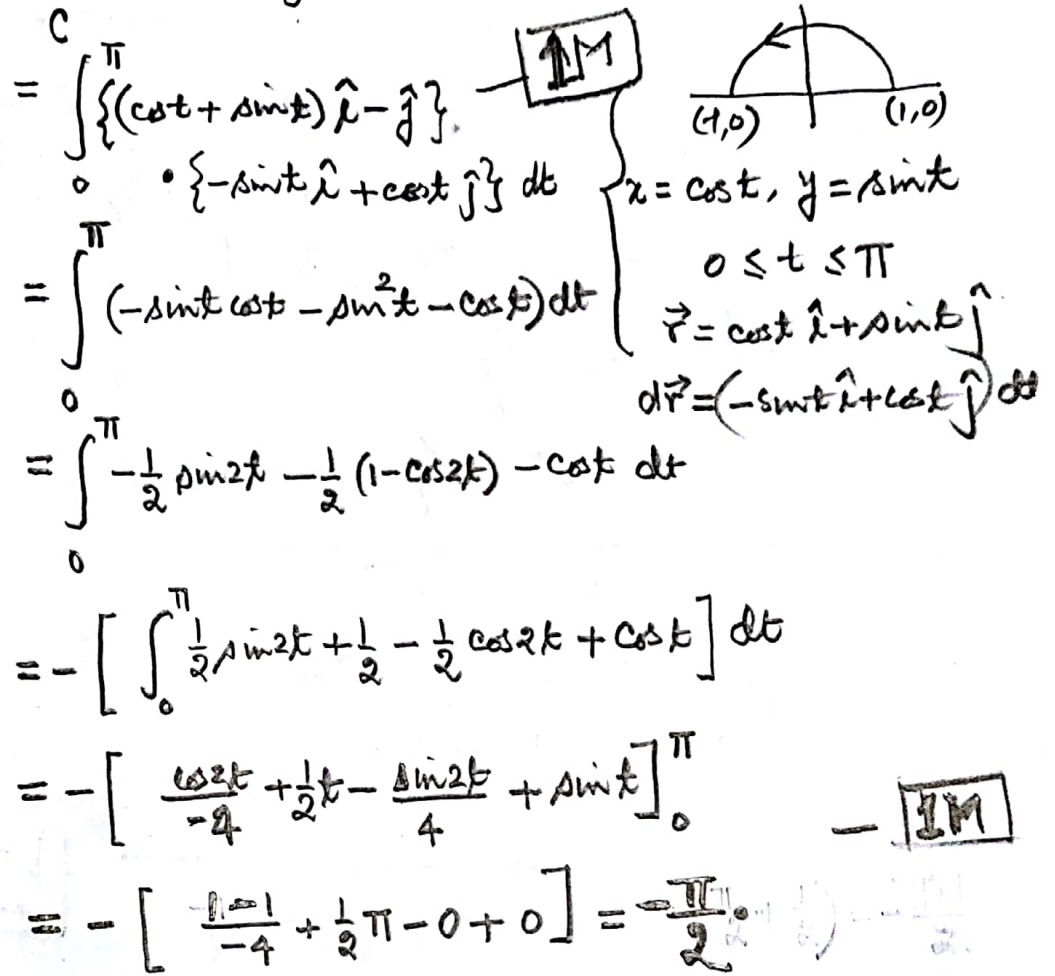 C
= ∫₀^π {(cost + sint) î − ĵ}. — 1M
• {−sint î + cost ĵ} dt
(-1,0) (1,0)
x = cost, y = sint
0 ≤ t ≤ π
r⃗ = cost î + sint ĵ
dr⃗ = (−sint î + cost ĵ) dt
= ∫₀^π (−sint cost − sin²t − cost) dt
= ∫₀^π −1/2 sin2t − 1/2 (1−cos2t) − cost dt
= −[ ∫₀^π 1/2 sin2t + 1/2 − 1/2 cos2t + cost ] dt
= −[ cos2t/−4 + 1/2 t − sin2t/4 + sint ]₀^π — 1M
= −[ 1−1/−4 + 1/2 π − 0 + 0 ] = −π/2.